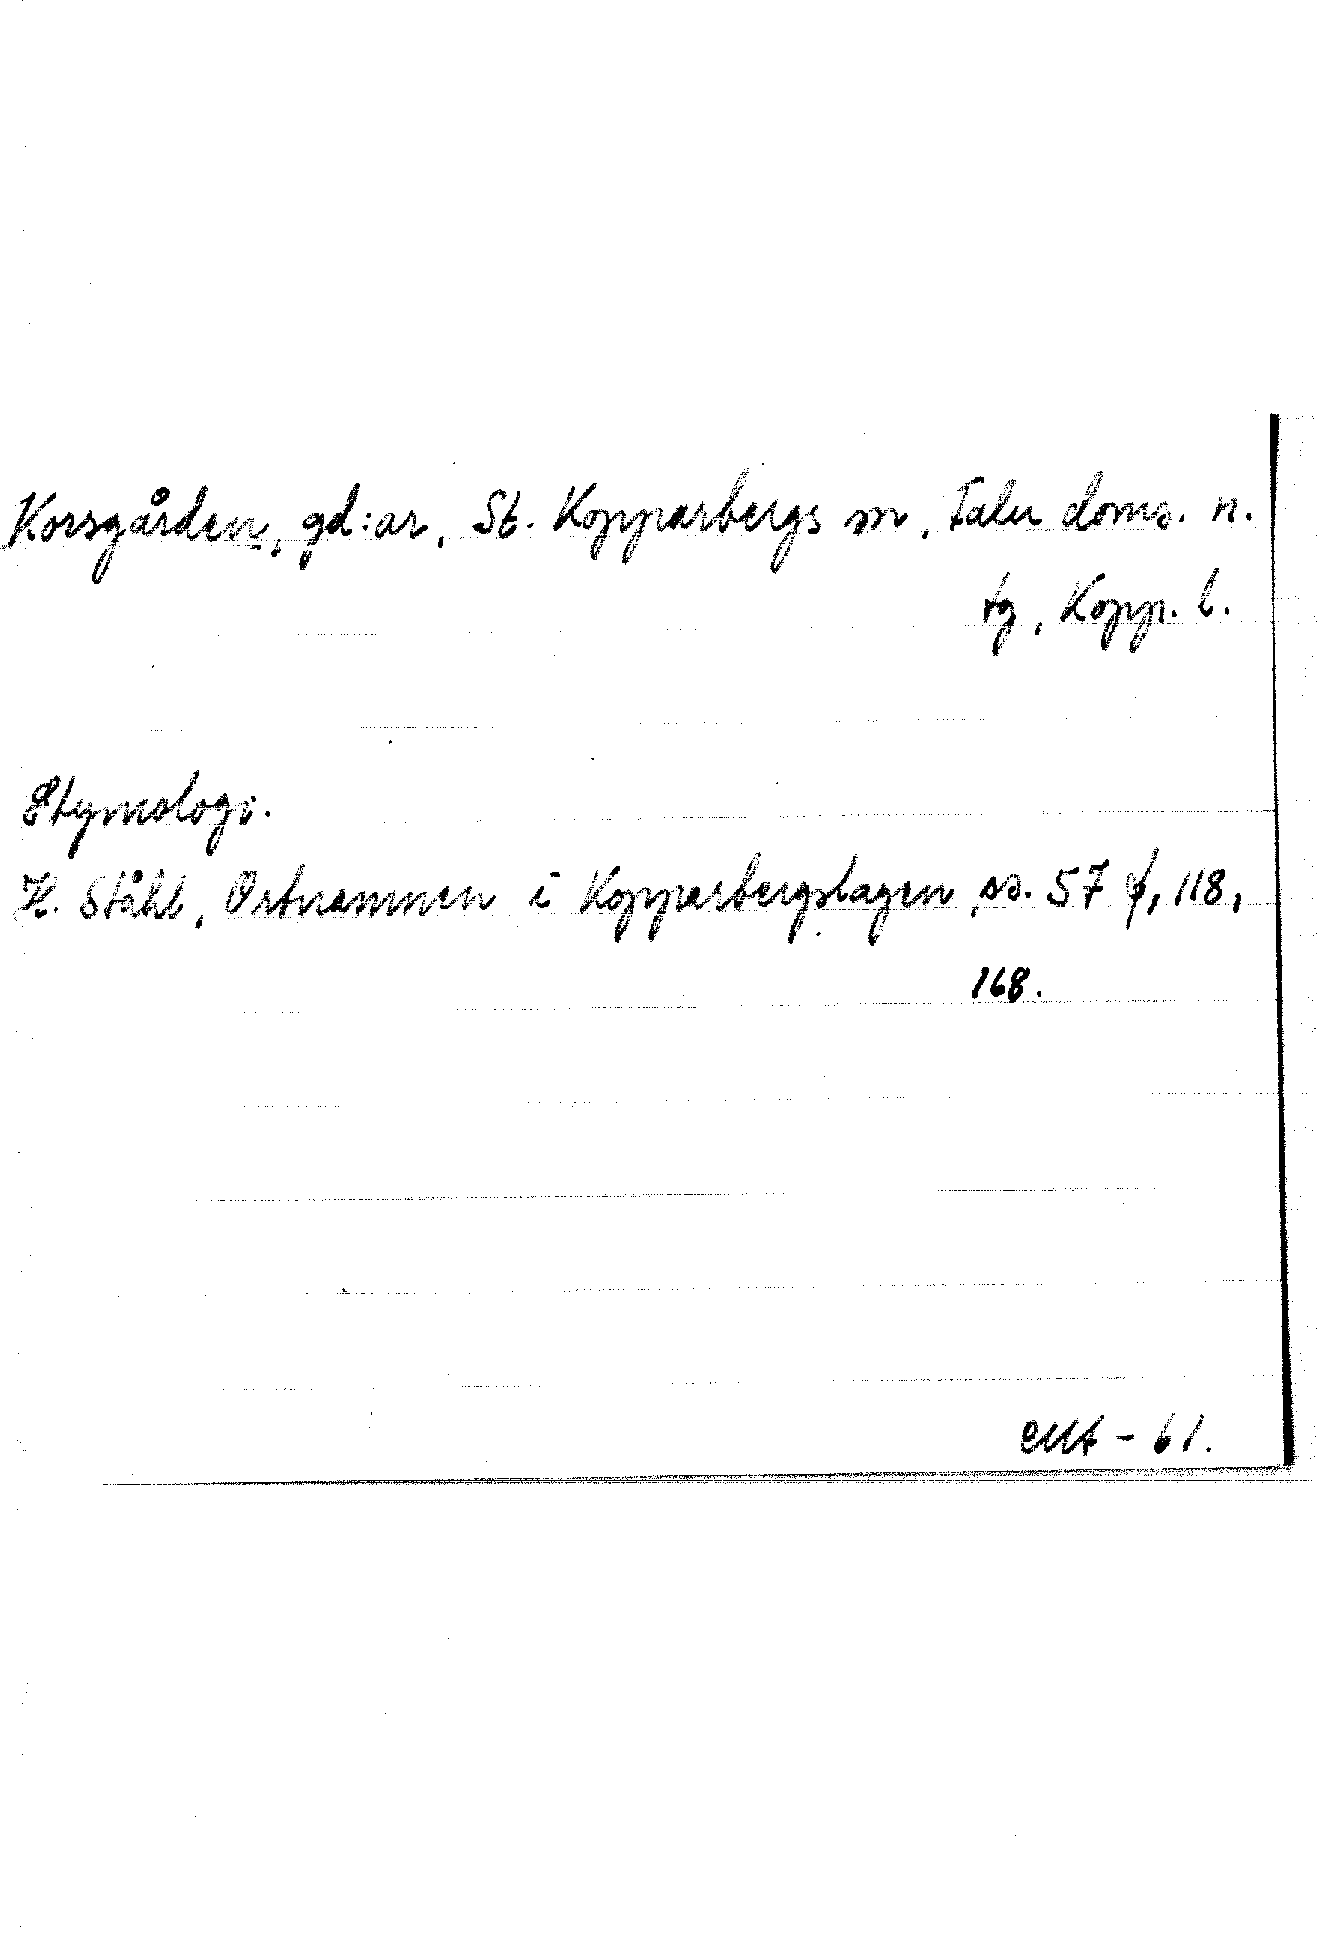 Korsgården, gd:ar, St. Kopparbergs sn, Falu doms. n.
tg, Kopp. l.
Etymologi.
H. Ståhl, Ortnamnen i Kopparbergslagen, ss. 57 f, 118,
168.
61.